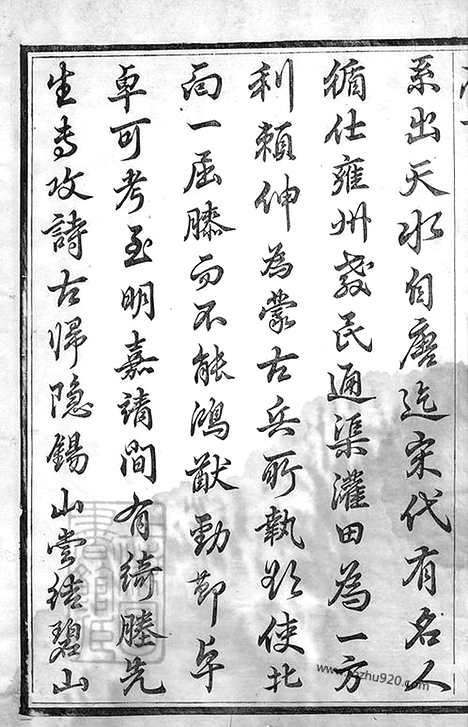 系出天水自唐迄宋代有名人
循仕雍州教民通渠灌田為一方
利賴伸為蒙古兵所執欲使北
向一屈膝而不能鴻猷勁節卓
卓可考至明嘉靖間有綺塍先
生專攻詩古歸隱錫山嘗結碧山